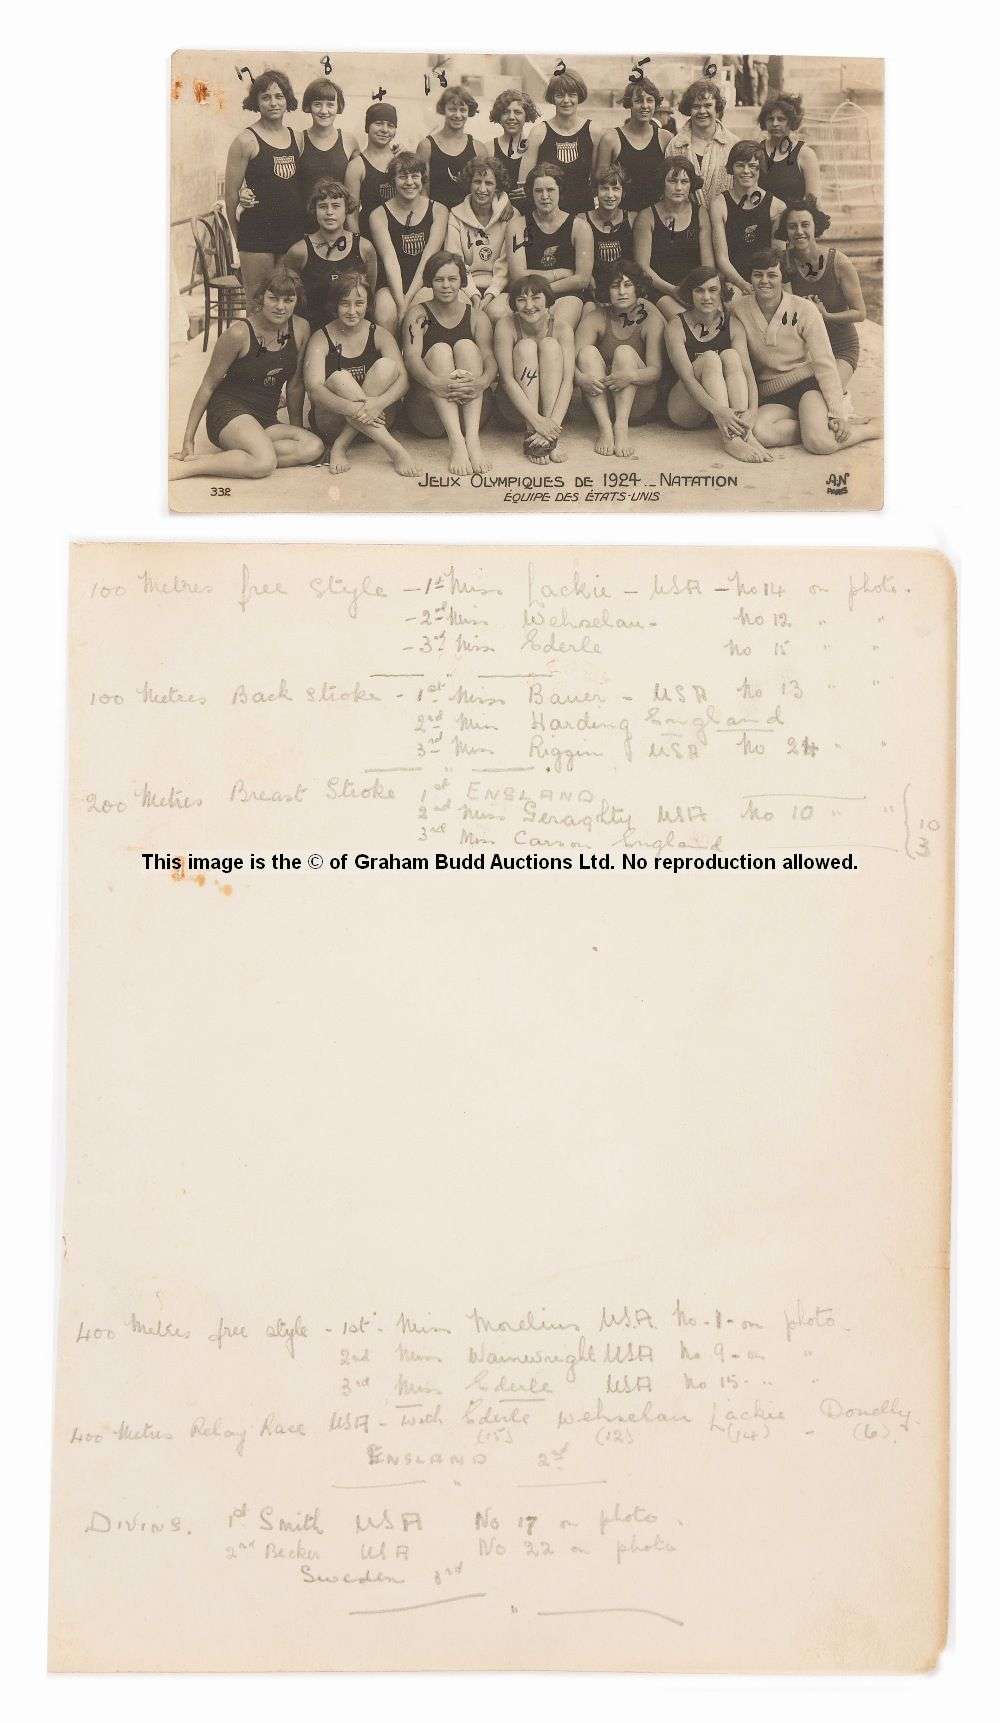 7 8 4 18 3 5 6
16 19
20 1 15 2 9 10 21
24 12 14 23 22 11
JEUX OLYMPIQUES DE 1924_NATATION
332 ÉQUIPE DES ÉTATS-UNIS A.N PARIS
100 Metres free Style - 1st Miss Lackie - USA - No 14 on photo.
- 2nd Miss Wehselau - No 12 " "
- 3rd Miss Ederle No 15 " "
100 Metres Back Stroke - 1st Miss Bauer - USA No 13 " "
2nd Miss Harding England
3rd Miss Riggin USA No 24 " "
200 Metres Breast Stroke 1st ENGLAND
2nd Miss Geraghty USA No 10 " " 10
3rd Miss Carson England 3
This image is the © of Graham Budd Auctions Ltd. No reproduction allowed.
400 Metres free style - 1st - Miss Morelius USA. No - 1 - on photo.
2nd Miss Wainwright USA No 9 - on "
3rd Miss Ederle USA No 15 - " "
400 Metres Relay Race USA - with Ederle Wehselau Lackie Donelly.
(15) (12) (14) - (6).
ENGLAND 2nd
DIVING. 1st Smith USA No 17 on photo.
2nd Becker USA No 22 on photo
Sweden 3rd